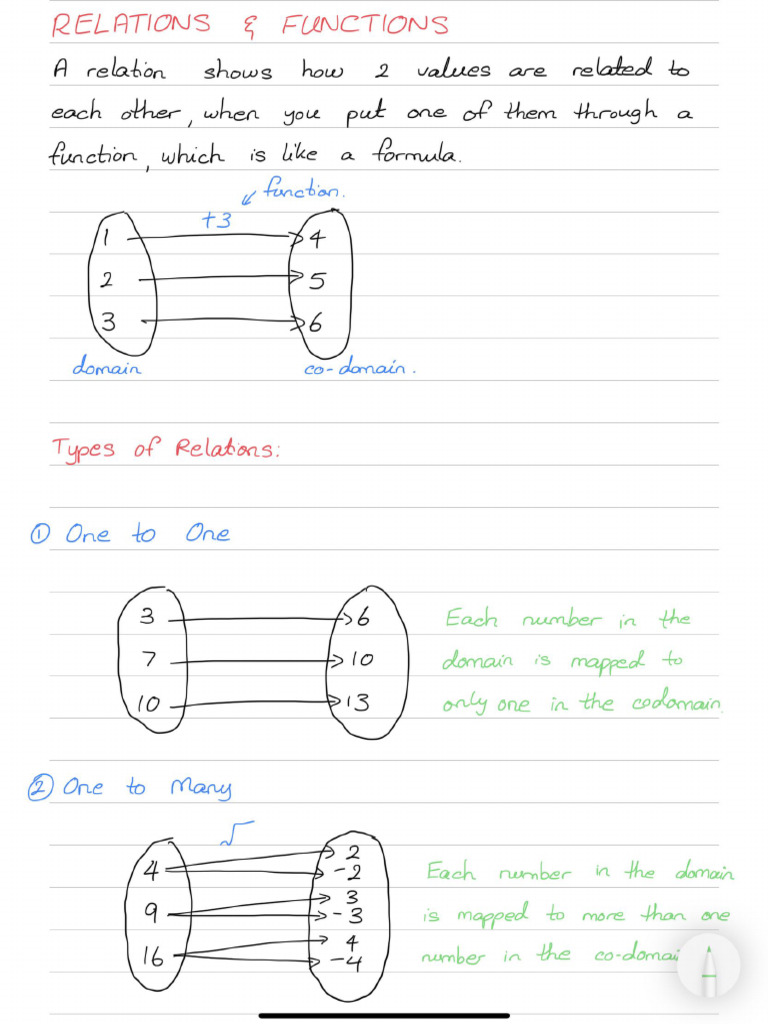 RELATIONS & FUNCTIONS
A relation shows how 2 values are related to
each other, when you put one of them through a
function, which is like a formula.
function.
+3
1 4
2 5
3 6
domain co-domain.
Types of Relations:
① One to One
3 6 Each number in the
7 10 domain is mapped to
10 13 only one in the codomain.
② One to Many
√
2
4 -2 Each number in the domain
3
9 -3 is mapped to more than one
4
16 -4 number in the